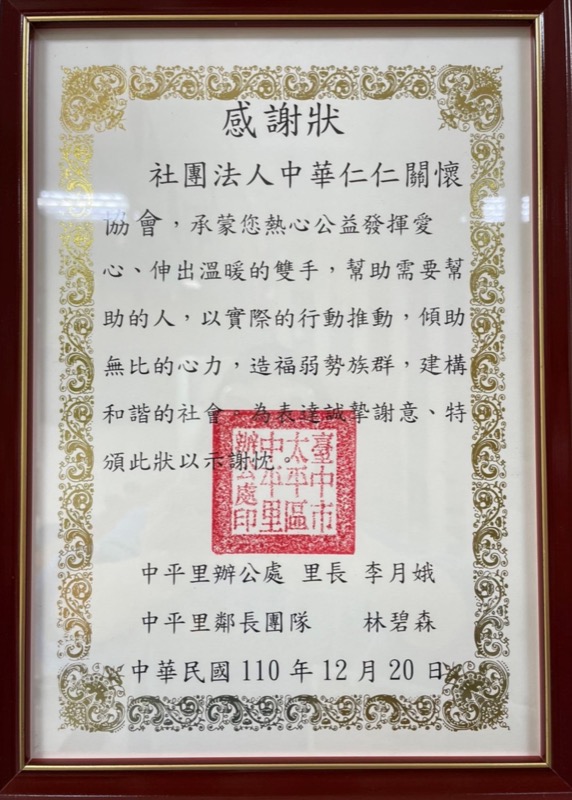 感謝狀
社團法人中華仁仁關懷
協會，承蒙您熱心公益發揮愛
心、伸出溫暖的雙手，幫助需要幫
助的人，以實際的行動推動，傾助
無比的心力，造福弱勢族群，建構
和諧的社會。為表達誠摯謝意、特
頒此狀以示謝忱。
臺中市
太平區
中平里
辦公處印
中平里辦公處 里長 李月娥
中平里鄰長團隊 林碧森
中華民國 110 年 12 月 20 日